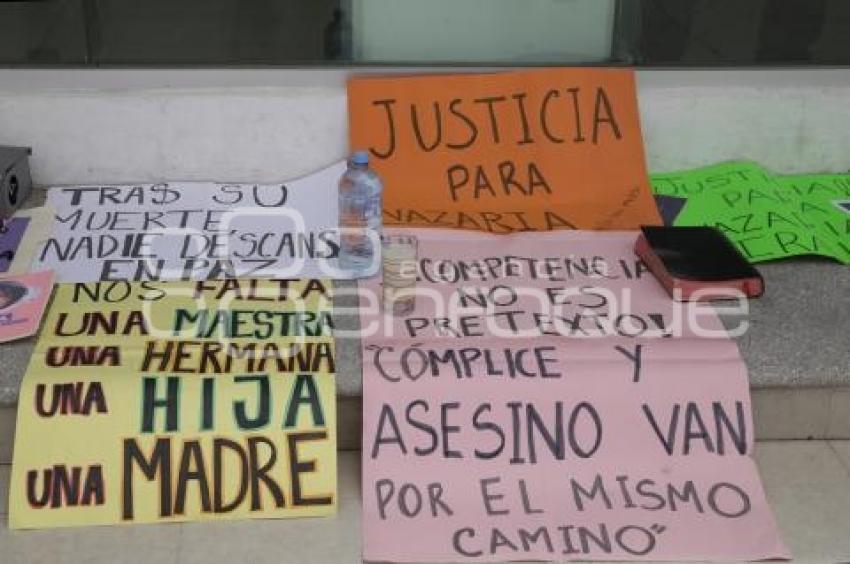 JUSTICIA
PARA
NAZARIA
TRAS SU
MUERTE
NADIE DESCANS
EN PAZ
NOS FALTA
UNA MAESTRA
UNA HERMANA
UNA HIJA
UNA MADRE
COMPETENCIA
NO ES
PRETEXTO!
"CÓMPLICE Y
ASESINO VAN
POR EL MISMO
CAMINO"
agencia
enfoque